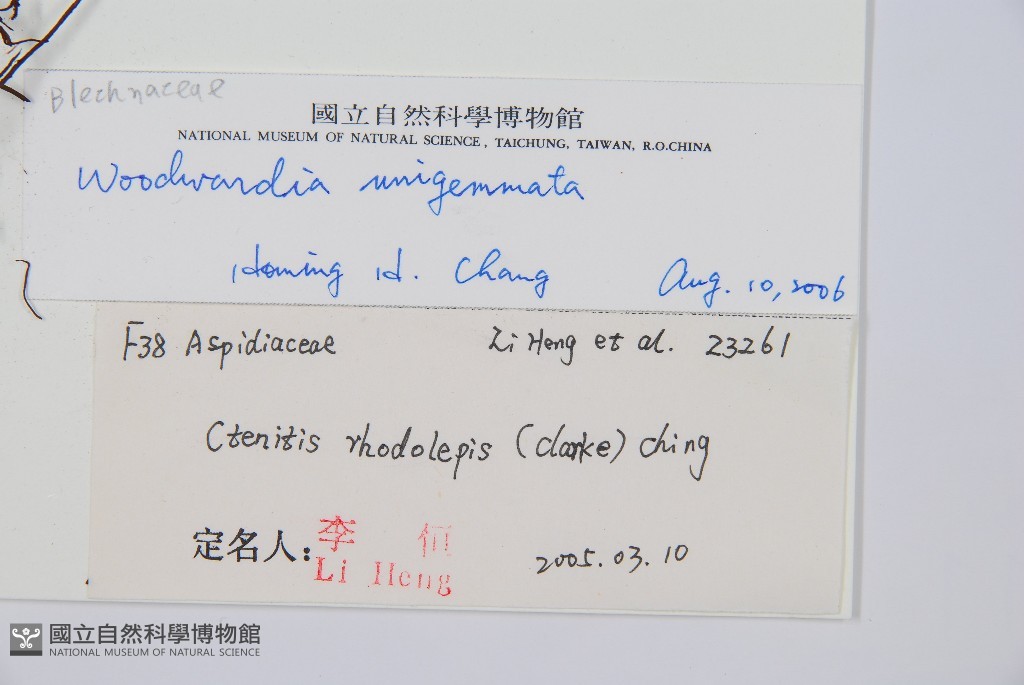 Blechnaceae
國立自然科學博物館
NATIONAL MUSEUM OF NATURAL SCIENCE, TAICHUNG, TAIWAN, R.O.CHINA
Woodwardia unigemmata
Homing H. Chang Aug. 10, 2006
F38 Aspidiaceae Li Heng et al. 23261
Ctenitis rhodolepis (Clarke) Ching
定名人: 李恒
Li Heng 2005.03.10
國立自然科學博物館
NATIONAL MUSEUM OF NATURAL SCIENCE